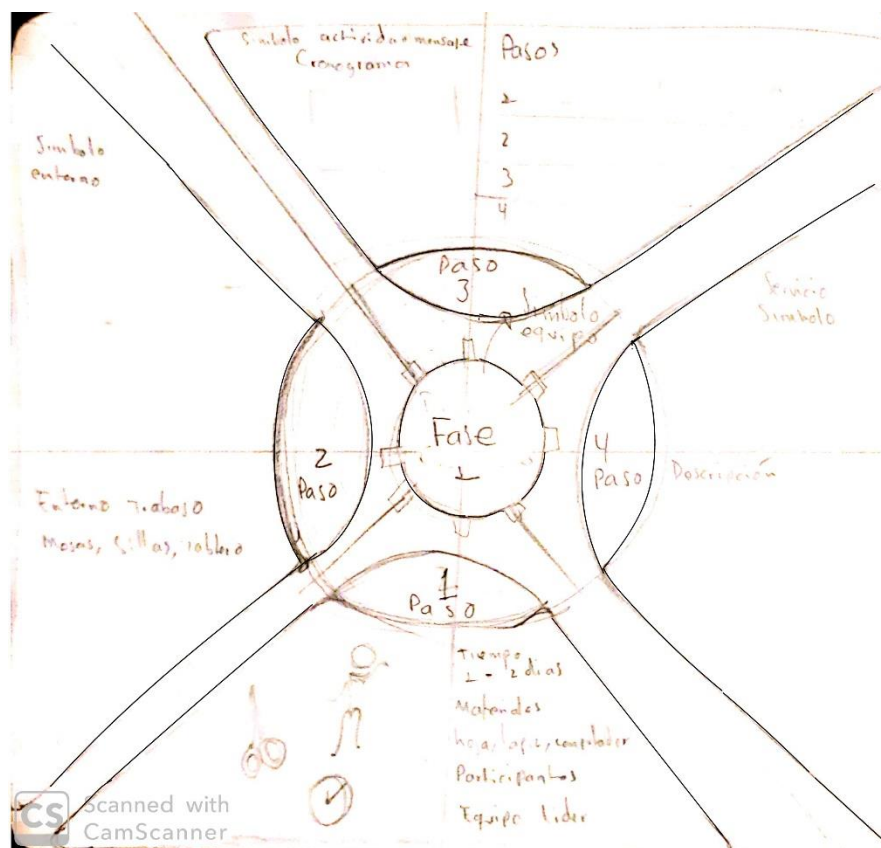 Simbolo actividad o mensaje
Cronograma
Pasos
1
2
3
4
Simbolo
entorno
Paso
3
Simbolo
equipo
Servicio
Simbolo
Fase
1
2
Paso
4
Paso
Descripción
Entorno Trabajo
Mesas, Sillas, Tablero
1
Paso
Tiempo
1 - 2 dias
Materiales
hoja, lapiz, computador
Participantes
Equipo lider
CS
Scanned with
CamScanner